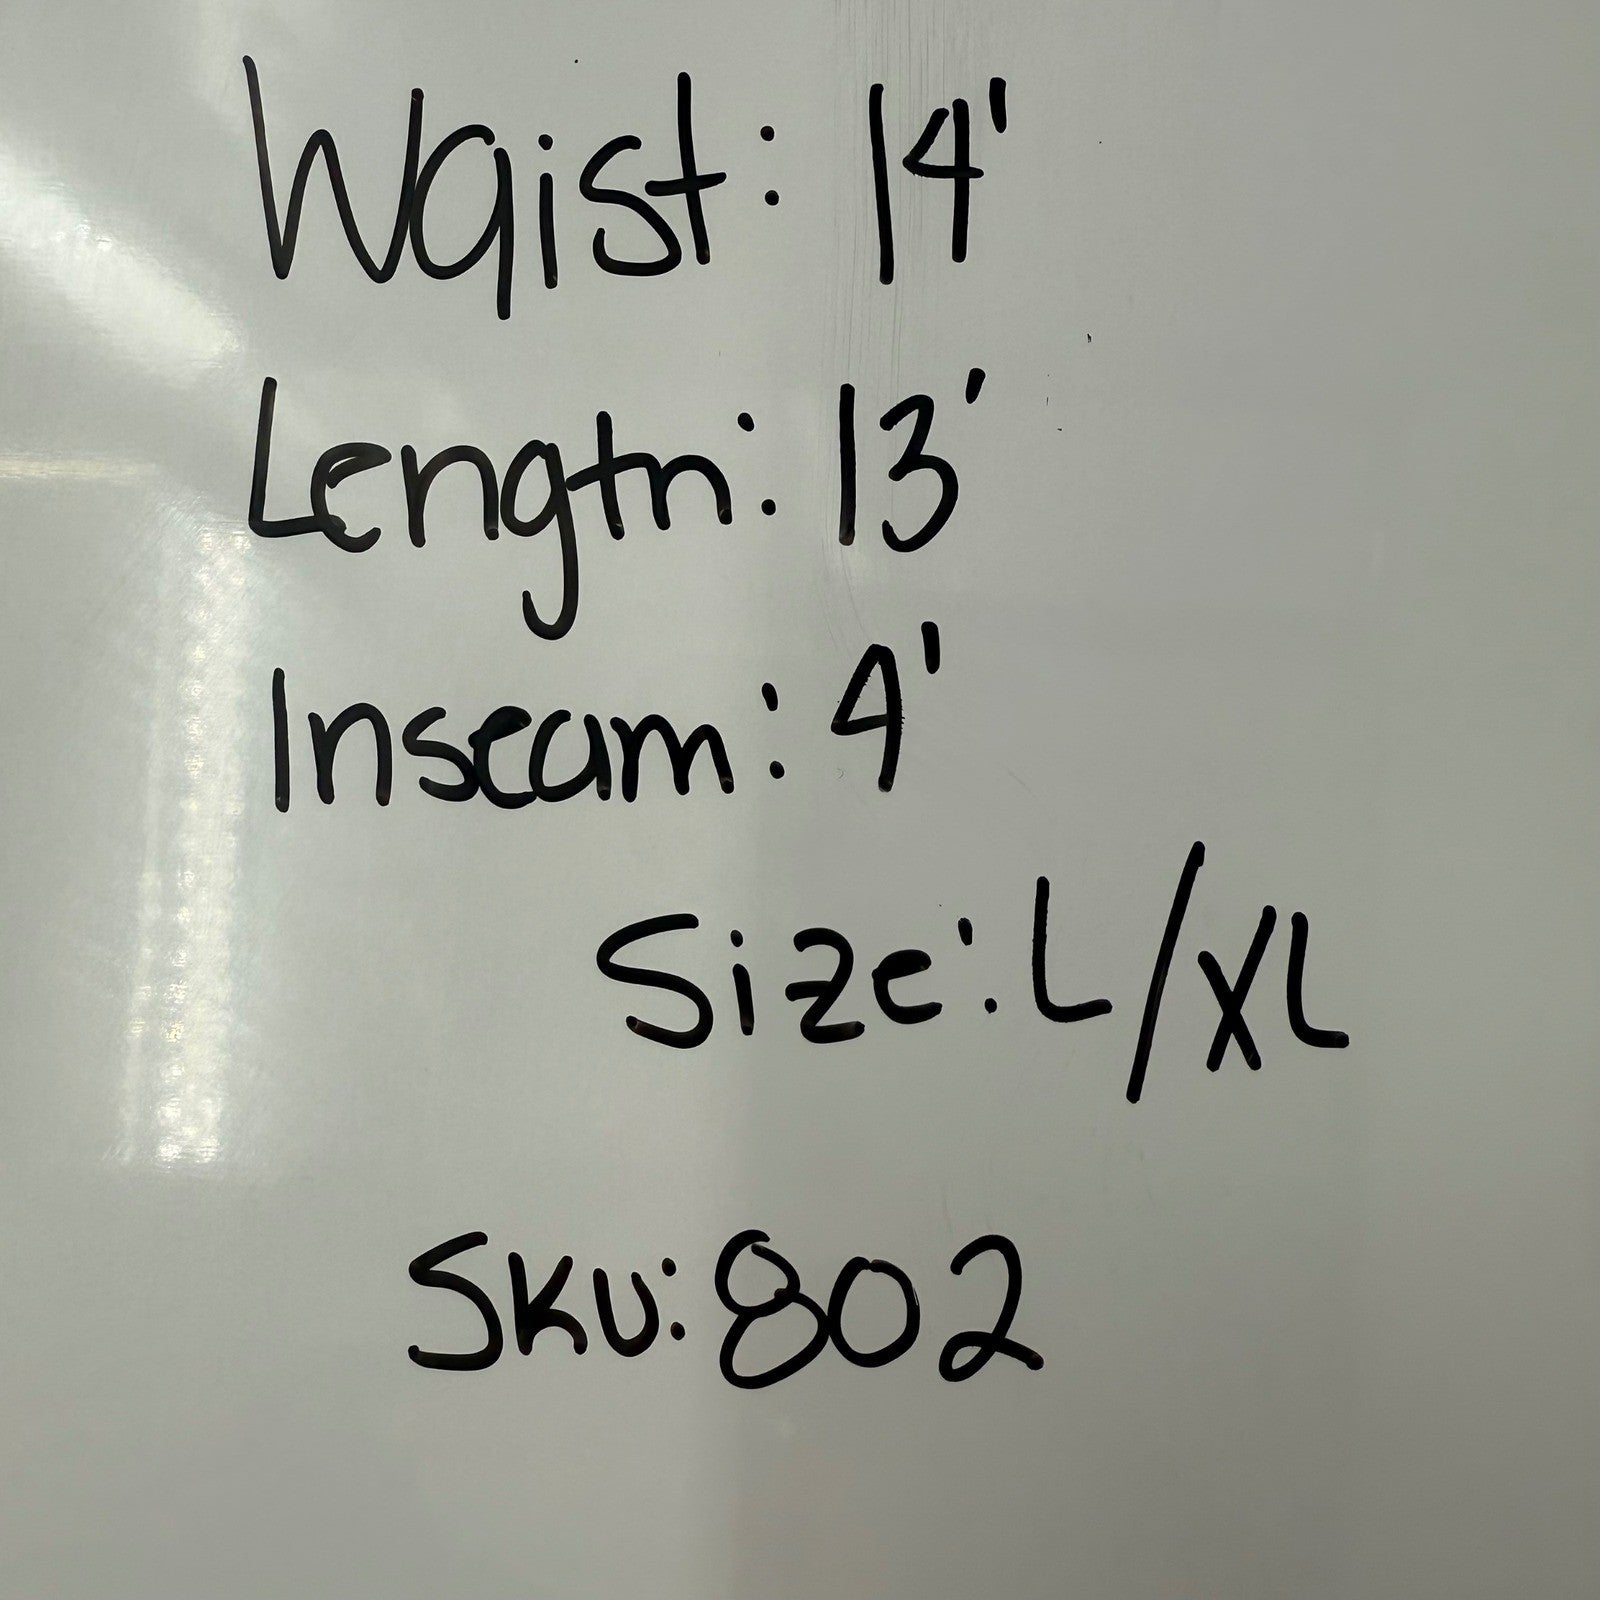 Waist: 14'
Length: 13'
Inseam: 4'
Size: L/XL
SKU: 802